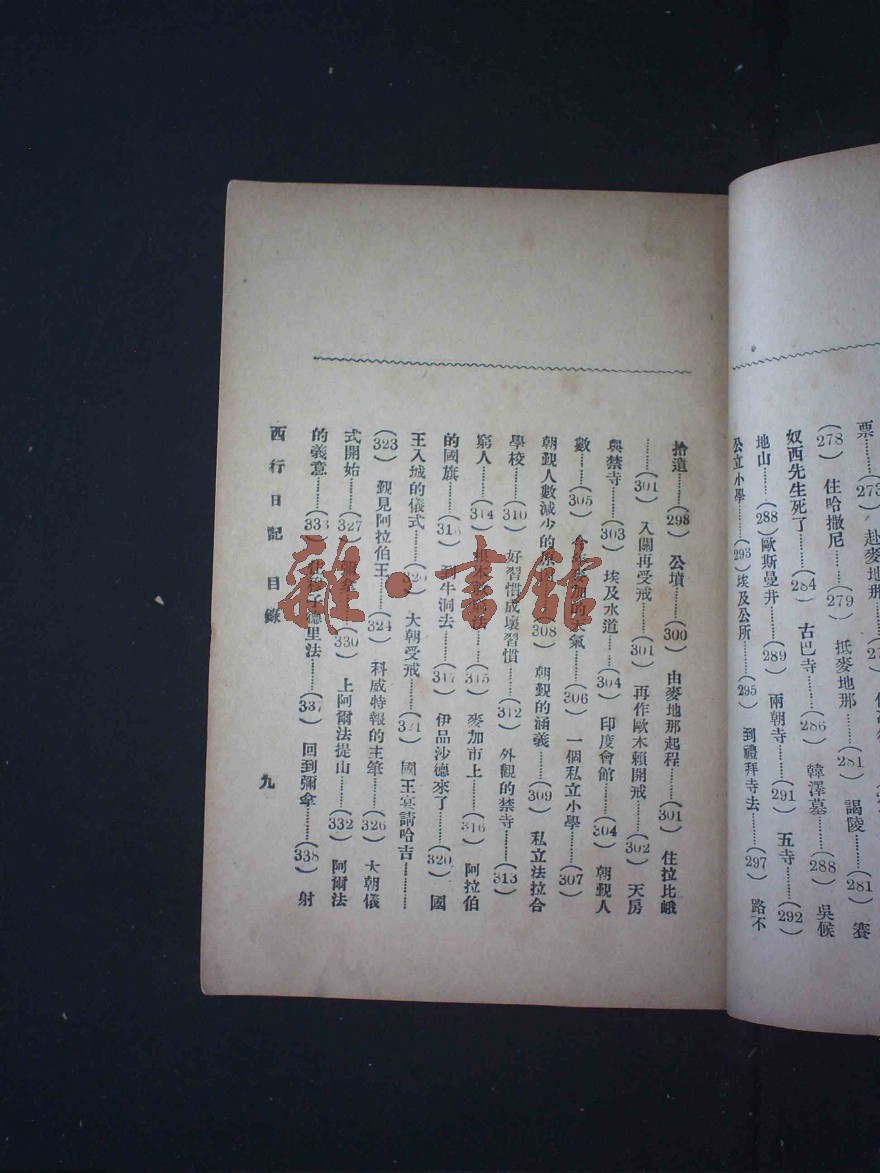 票……(273
赴麥地那
(278) 住哈撒尼……(279) 抵麥地那……(281) 謁陵……(281) 賽
奴西先生死了……(284 古巴寺……(286) 韓澤墓……(288) 吳候
地山……(288) 歐斯曼井……(289) 兩朝寺……(291) 五寺……(292)
公立小學………(293) 埃及公所……(295) 到禮拜寺去……(297) 路不
拾遺……(298) 公墳……(300) 由麥地那起程……(301) 住拉比峨
……(301) 入關再受戒……(301) 再作歐木賴開戒……(302) 天房
與禁寺……(303) 埃及水道……(304) 印度會館……(304) 朝覲人
數……(305) 今年麥加的天氣……(306) 一個私立小學……(307)
朝覲人數減少的原……308) 朝覲的涵義……(309) 私立法拉合
學校……(310) 好習慣成壞習慣……(312) 外觀的禁寺……(313)
窮人……(314) 法……(315) 麥加市上……(316) 阿拉伯
的國旗……(31 到牛洞去……(317) 伊品沙德來了……(320) 國
王入城的儀式……(320) 大朝受戒……(321) 國王宴請哈吉………
(323) 覲見阿拉伯王……(324) 科威特報的主筆……(326) 大朝儀
式開始……(327) ……(330) 上阿爾法提山……(332) 阿爾法
的義意……(333 德里法……(337) 回到彌拿……(338) 射
西行日記 目錄
九
雜·書館